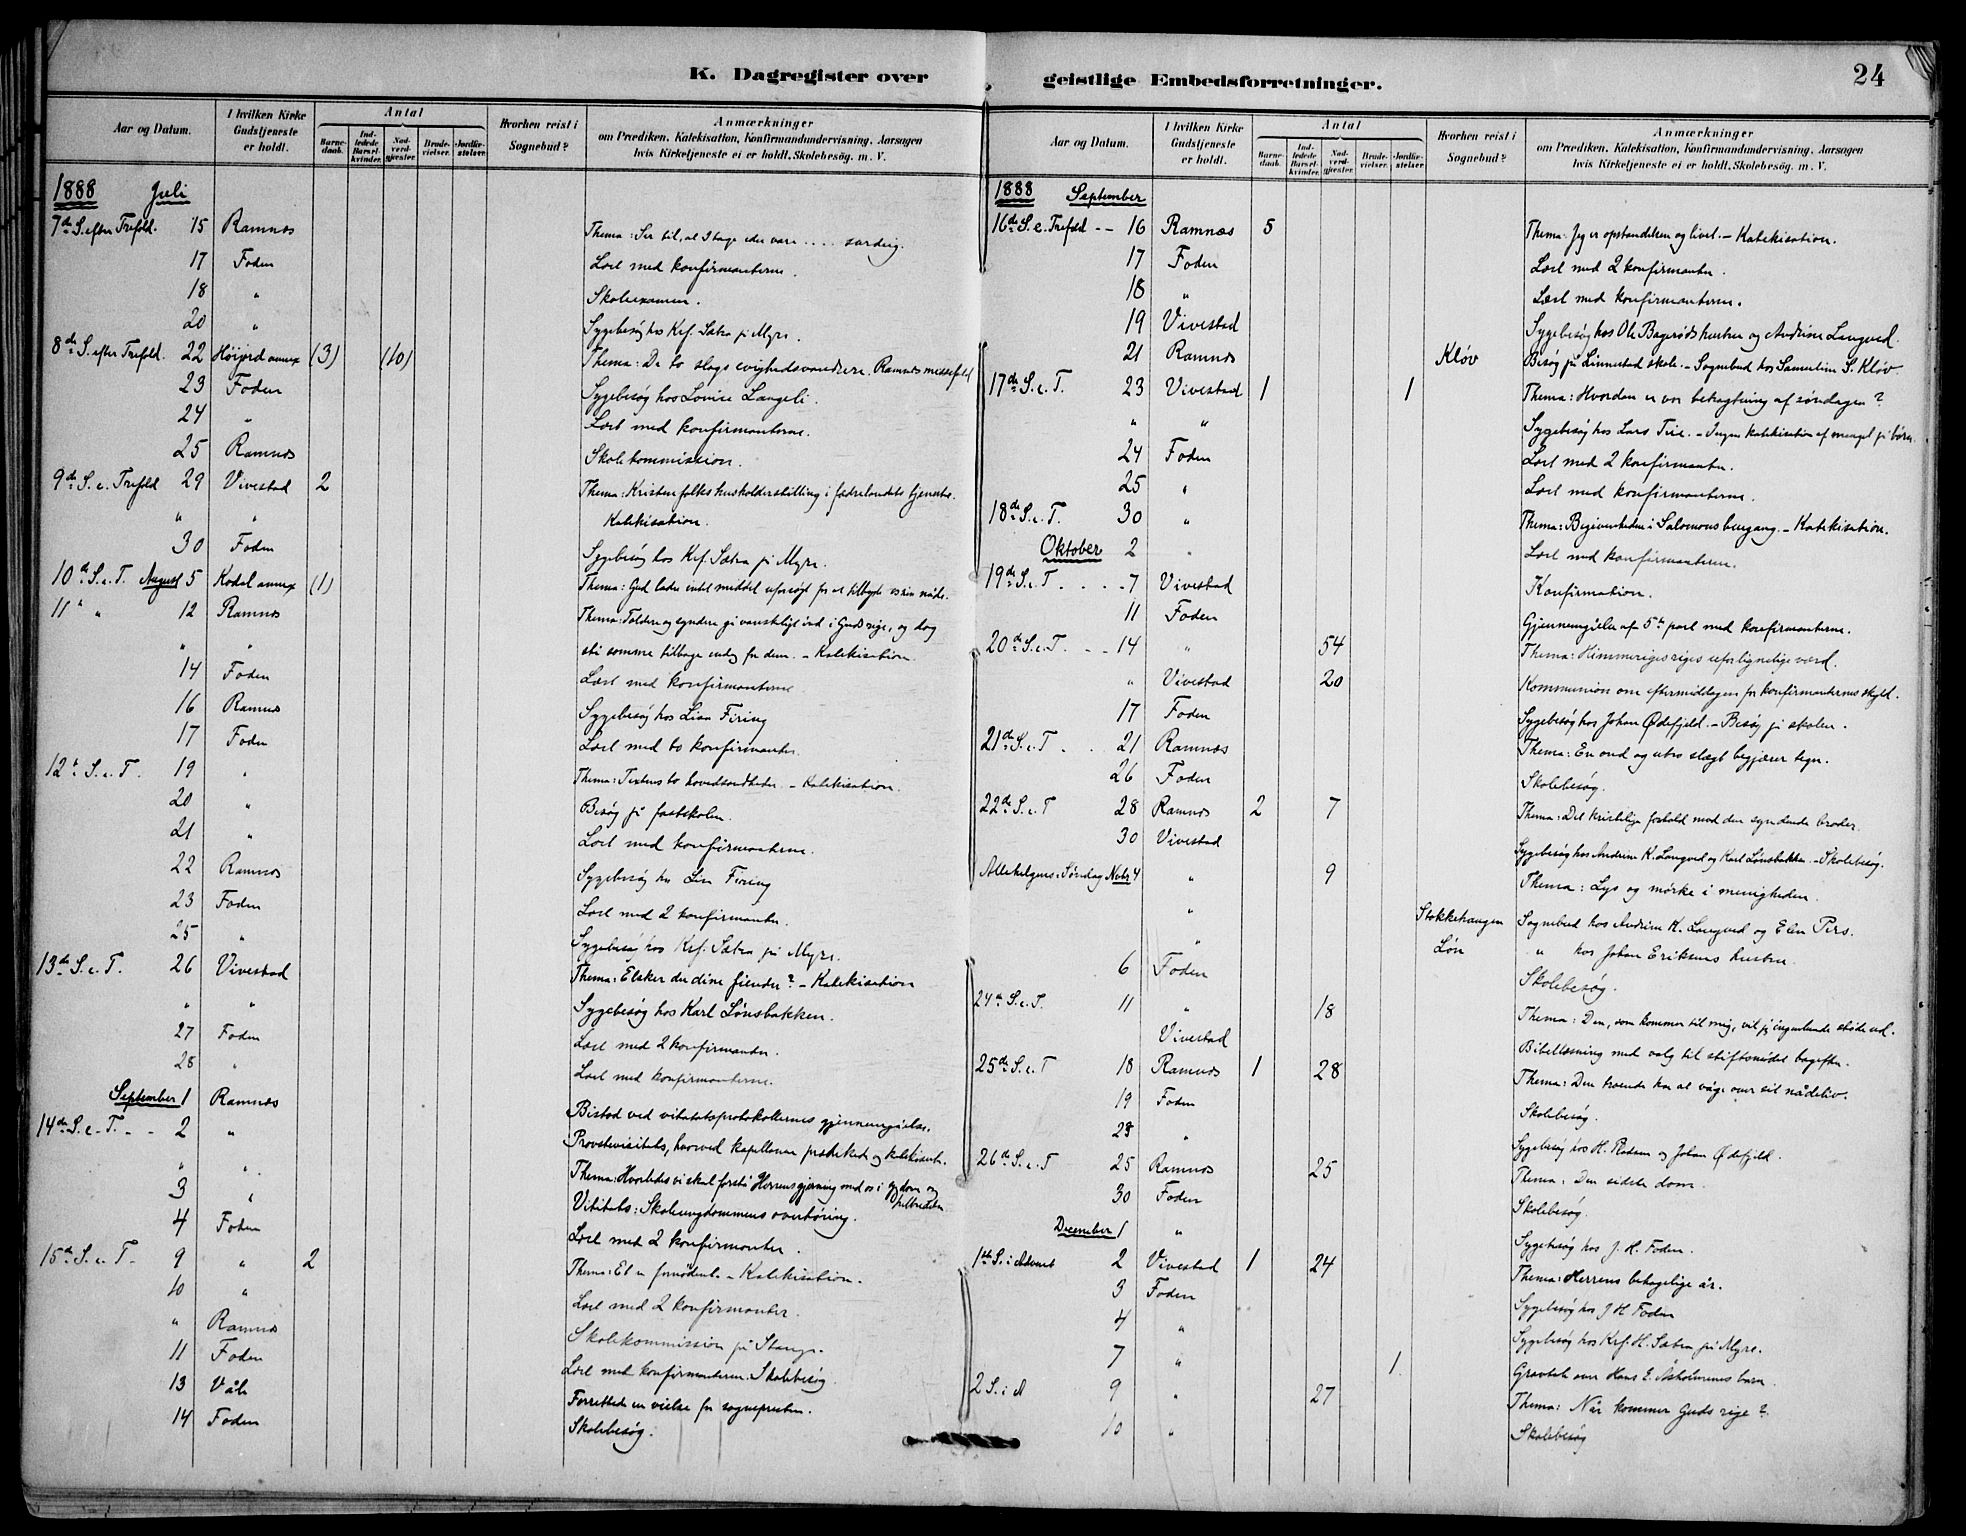 K. Dagregister over
Aar og Datum. I hvilken Kirke Gudstjeneste er holdt. Antal Barne-daab. Ind-ledede Barsel-kvinder. Nad-verd-gjæster. Brude-vielser. Jordfæ-stelser. Hvorhen reist i Sognebud? Anmærkninger om Prædiken, Katekisation, Konfirmandundervisning, Aarsagen hvis Kirketjeneste ei er holdt, Skolebesøg. m. V.
1888 Juli
7de S. efter Trefold. 15 Ramnæs Thema: Ser til, at I tage eder vare . . . . surdeig.
17 Foden Læst med konfirmanterne.
18 " Skoleexamen.
20 " Sygebesøg hos Krf. Sætra på Myre.
8de S. efter Trefold. 22 Høijord annex (3) (10) Thema: De to slags evighedsvandrere. Ramnæs messefald
23 Foden Sygebesøg hos Lovise Langeli.
24 " Læst med konfirmanterne.
25 Ramnæs Skolekommission.
9de S. e. Trefold 29 Vivestad 2 Thema: Kristenfolks husholderstilling i fædrelandets tjeneste.
" " Katekisation.
30 Foden Sygebesøg hos Krf. Sætra på Myre.
10de S. e. T. August 5 Kodal annex (1) Thema: Gud lader intet middel uforsøgt for at tilbyde os sin nåde.
11 " " 12 Ramnæs Thema: Toldere og syndere gå vanskeligt ind i Guds rige, og dog
" " sti somme tilbage endog for dem. - Katekisation.
14 Foden Læst med konfirmanterne.
16 Ramnæs Sygebesøg hos Lisa Firing
17 Foden Læst med to konfirmanter.
12te S. e. T. 19 " Thema: Textens to hovedsandheder. - Katekisation.
20 " Besøg på fastskolen.
21 " Læst med konfirmanterne.
22 Ramnæs Sygebesøg hos Lisa Firing
23 Foden Læst med 2 konfirmanter.
25 " Sygebesøg hos Krf. Sætra på Myre.
13de S. e. T. 26 Vivestad Thema: Elsker du dine fiender? - Katekisation
" " Sygebesøg hos Karl Lønsbakken.
27 Foden Læst med 2 konfirmanter.
28 " Læst med konfirmanterne.
September 1 Ramnæs Bistod ved visitatsprotokollernes gjennemgåelse.
14de S. e. T. - - 2 " Provstevisitats, hvorved kapellanen prædiked og katekiserte.
" " Thema: Hvorledes vi skal forstå Herrens gjerning med os i sygdom og helbredelse
3 " Visitats: Skoleungdommens overhøring.
4 Foden Læst med 2 konfirmanter.
15de S. e. T. 9 " 2 Thema: Et er fornødent. - Katekisation.
10 " Læst med 2 konfirmanter.
" Ramnæs Skolekommission på Stange.
11 Foden Læst med konfirmanterne. Skolebesøg
13 Våle Forrettede en vielse for sognepresten.
14 Foden Skolebesøg.
geistlige Embedsforretninger. 24
Aar og Datum. I hvilken Kirke Gudstjeneste er holdt. Antal Barne-daab. Ind-ledede Barsel-kvinder. Nad-verd-gjæster. Brude-vielser. Jordfæ-stelser. Hvorhen reist i Sognebud? Anmærkninger om Prædiken, Katekisation, Konfirmandundervisning, Aarsagen hvis Kirketjeneste ei er holdt, Skolebesøg. m. V.
1888 September
16de S. e. Trefold - - 16 Ramnæs 5 Thema: Jeg er opstandelsen og livet. - Katekisation.
17 Foden Læst med 2 konfirmanter.
18 " Læst med konfirmanterne.
19 Vivestad Sygebesøg hos Ole Bagerøds hustru og Andrine Langved.
21 Ramnæs Kløv Besøg på Linnestad skole. - Sognebud hos Samueline S. Kløv
17de S. e. T. 23 Vivestad 1 1 Thema: Hvordan er vor betragtning af søndagen?
" " Sygebesøg hos Lars Tire. - Ingen katekisation af mangel på børn.
24 Foden Læst med 2 konfirmanter.
25 " Læst med konfirmanterne.
18de S. e. T. 30 " Thema: Begivenheden i Salomons buegang. - Katekisation.
Oktober 2 " Læst med konfirmanterne.
19de S. e. T . . . . 7 Vivestad Konfirmation.
11 Foden Gjennemgåelse af 5te part med konfirmanterne.
20de S. e. T. . - - 14 " 54 Thema: Himmerigesriges uforlignelige værd.
" Vivestad 20 Kommunion om eftermiddagen for konfirmanternes skyld.
17 Foden Sygebesøg hos Johan Ødefjeld. - Besøg på skolen.
21de S. e. T . . . 21 Ramnæs Thema: En ond og utro slægt begjærer tegn.
26 Foden Skolebesøg.
22de S. e. T 28 Ramnæs 2 7 Thema: Det kristelige forhold mod den syndende broder.
30 Vivestad Sygebesøg hos Andrine K. Langved og Karl Lønsbakken. - Skolebesøg.
Allehelgens-Søndag Novbr 4 " 9 Thema: Lys og mørke i menigheden.
" Stokkehaugen Sognebud hos Andrine K. Langved og Elen Pers.
" Løn " hos Johan Eriksens hustru.
6 Foden Skolebesøg.
24de S. e. T. 11 " 18 Thema: Den, som kommer til mig, vil jeg ingenlunde støde ud.
Vivestad Bibellæsning med valg til stiftsmødet bagefter.
25de S. e. T 18 Ramnæs 1 28 Thema: Den troende har at våge over sit nådeliv.
19 Foden Skolebesøg.
23 " Sygebesøg hos H. Rodem og Johan Ødefjeld.
26de S. e. T 25 Ramnæs 25 Thema: Den sidste dom.
30 Foden Skolebesøg.
December 1 " Sygebesøg hos J. H. Foden.
1ste S. i Advent 2 Vivestad 1 24 Thema: Herrens behagelige år.
3 Foden Sygebesøg hos J H Foden
4 " Sygebesøg hos Krf. H. Sætra på Myre.
7 " 1. Gravtale over Hans E. Åsholmens barn.
2 S. i A 9 " 27 Thema: Når kommer Guds rige?
10 " Skolebesøg